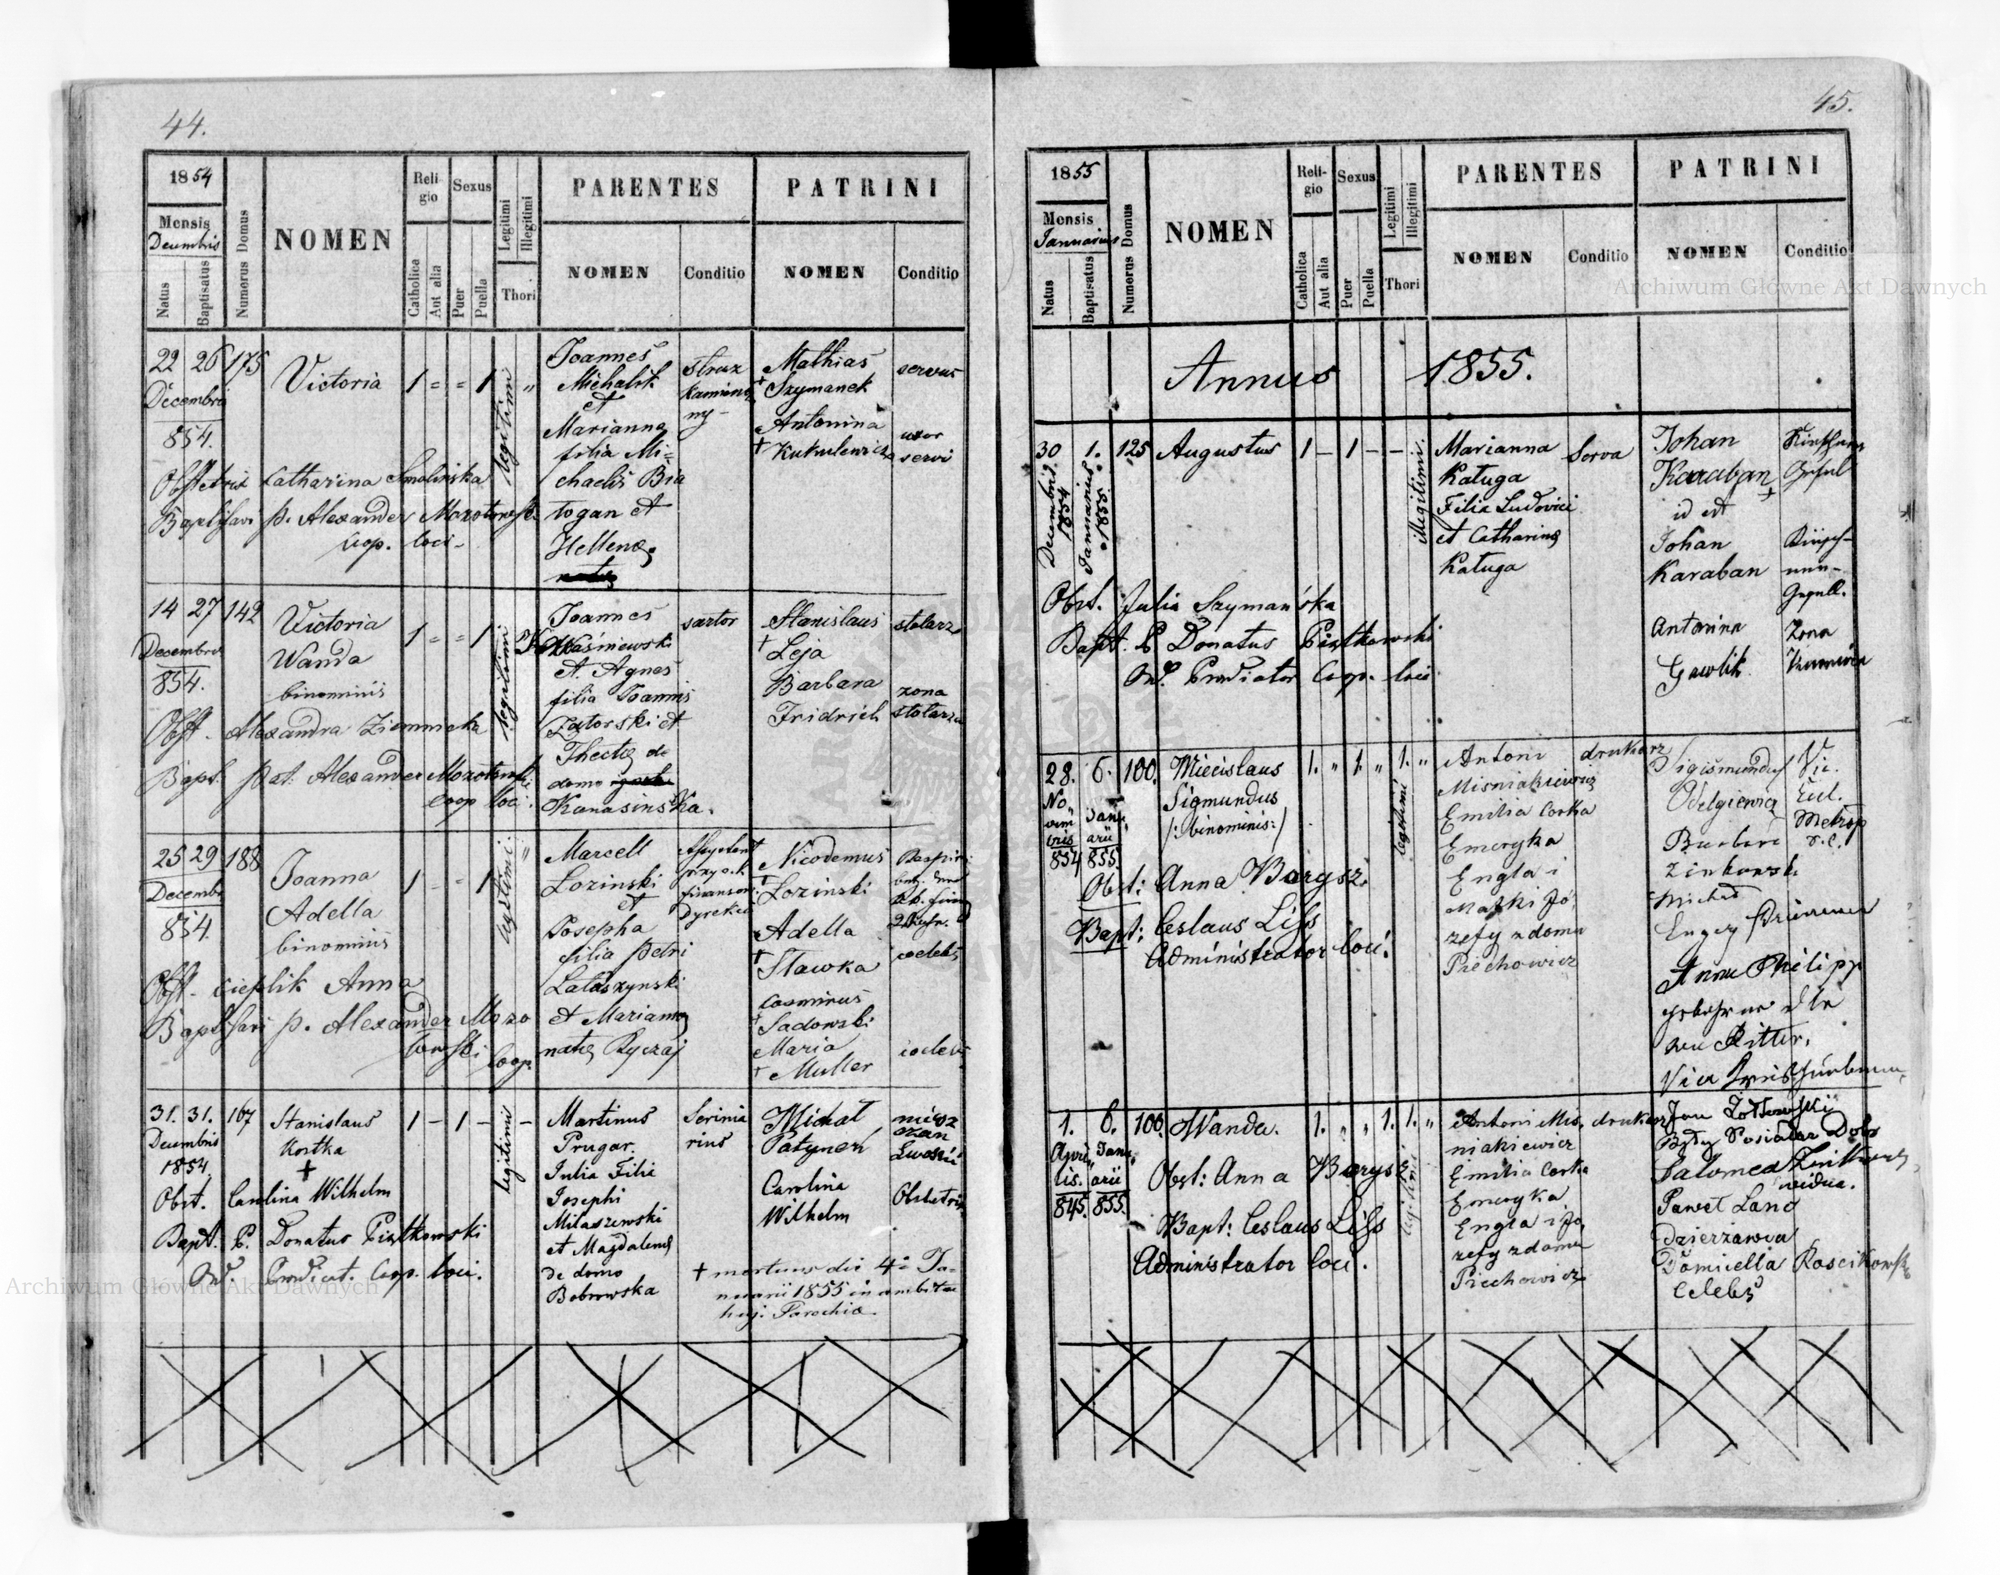 44.
1854
Mensis
Decembris
Natus
Baptisatus
Numerus Domus
NOMEN
Religio
Catholica
Aut alia
Sexus
Puer
Puella
Legitimi
Illegitimi
Thori
PARENTES
NOMEN
Conditio
PATRINI
NOMEN
Conditio
22 26 175
Decembris
854.
Victoria
1 = = 1
legitimi
"
Joannes
Michalik
et
Marianna
filia Mi=
chaelis Bia
togan et
Hellenae
struz
kamienny
Mathias
Szymanek
servus
Antonina
Kukulewicz
uxor
servi
Obstetrix Catharina Smolinska
Baptisavi p. Alexander Mozotowski
Coop. loci-
14 27 142
Decembris
854.
Victoria
Wanda
binominis
1 = = 1
legitimi
Joannes
Kwaśniewski
et Agnes
filia Joannis
Zatorski et
Theclae de
domo
Kanasinska.
sartor
Stanislaus
Leja
stolarz
Barbara
Fridrich
zona
stolarza
Obst. Alexandra Ziemnicka
Bapt. pat. Alexander Mozotowski
coop loci.
25 29 188
Decembr
854.
Joanna
Adella
binominis
1 = = 1
legitimi
"
Marcell
Lozinski
et
Josepha
filia Petri
Lataszynski
et Mariannae
natae Ryczaj
Nicodemus
Lozinski
Adella
Slawka
coelebs
Casmirus
Sadowski
Maria
Muller
Obst. Cieplik Anna
Baptisavi p. Alexander Mozo
towski Coop.
31. 31. 167
Decembris
1854.
Stanislaus
Kostka
+
1 - 1 - -
legitimus
Martinus
Prugar
Julia Filia
Josephi
Milaszewski
et Magdalenae
de domo
Bobrowska
Scrinia
rius
Michał
Patyneń
miesz
czan
Lwoski
Carolina
Wilhelm
Obstetrix
Obst. Carolina Wilhelm
Bapt. P. Donatus Piątkowski
Ord. Praedicat. Coop. loci.
+ mortuus die 4a Ja-
nuarii 1855 in ambitu
huj. Parochiae.
45.
1855
Mensis
Januarius
Natus
Baptisatus
Numerus Domus
NOMEN
Religio
Catholica
Aut alia
Sexus
Puer
Puella
Legitimi
Illegitimi
Thori
PARENTES
NOMEN
Conditio
PATRINI
NOMEN
Conditio
Annus 1855.
30 1. 125
Decembris 1854
Januarius 1855.
Augustus
1 - 1 - -
Illegitimi.
Marianna
Katuga
Filia Ludovici
et Catharinae
Katuga
Serva
Johan
Karaban
id est
Johan
Karaban
Antonina
Gawlik
Zona
Obst. Julia Szymańska
Bapt. P. Donatus Piątkowski
Ord. Praedicator Coop. loci
28. 6. 100.
No
vem
bris
854
Janu
arii
855.
Miecislaus
Sigmundus
/: binominis:/
1. " 1. " 1. "
legitimi
Antoni
Misniakiewicz
Emilia Corka
Emeryka
Engla i
Matki Jó,
zefy z domu
Piechowicz
drukarz
Sigismundus
Odelgiewicz
Barbara
Zinkowski
Michał
Anna Philipp
Ritter.
Obst: Anna Barysz.
Bapt: Ceslaus Liss
Administrator loci.
1. 6. 100.
Apri
lis.
845.
Janu
arii
855.
Wanda.
1. " " 1. 1. "
legitimi
Antoni Mis,
niakiewicz
Emilia Corka
Emeryka
Engla i Jó,
zefy z domu
Piechowicz
drukarz
Jan Zołkowski
Były Posiadar Dobr
Salomea
widua.
Paweł Land
dzierzawca
Domicella Roscikowska
Celebs
Obst: Anna Barysz
Bapt: Ceslaus Liss
Administrator loci.
Archiwum Główne Akt Dawnych
Archiwum Główne Akt Dawnych